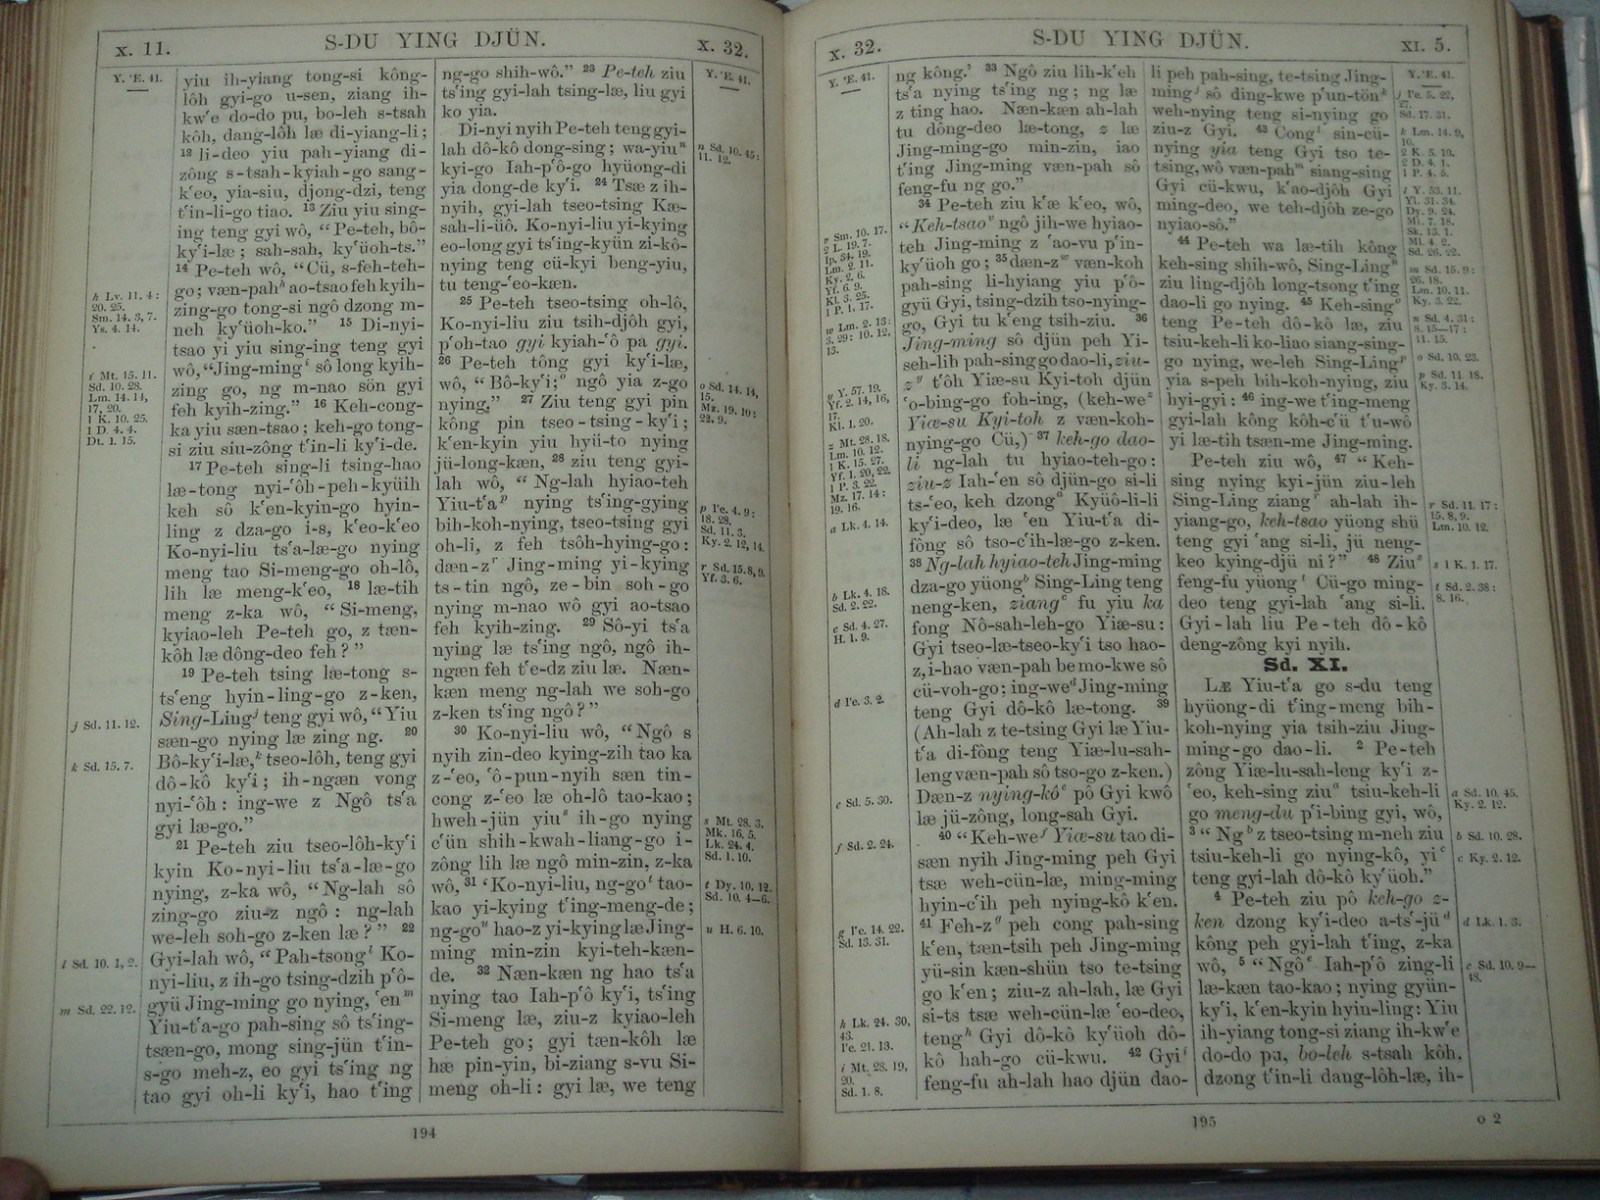 x. 11.
S-DU YING DJÜN.
x. 32.
Y. 'E. 41.
yiu ih-yiang tong-si kông-
lôh gyi-go u-sen, ziang ih-
kw'e do-do pu, bo-leh s-tsah
kôh, dang-lôh læ di-yiang-li;
12 li-deo yiu pah-yiang di-
zông s-tsah-kyiah-go sang-
k'eo, yia-siu, djong-dzi, teng
t'in-li-go tiao. 13 Ziu yiu sing-
ing teng gyi wô, “Pe-teh, bô-
ky'i-læ; sah-sah, ky'üoh-ts.”
14 Pe-teh wô, “Cü, s-feh-teh-
go; væn-pah h ao-tsao feh kyih-
zing-go tong-si ngô dzong m-
neh ky'üoh-ko.” 15 Di-nyi-
tsao yi yiu sing-ing teng gyi
wô, “Jing-ming i sô long kyih-
zing go, ng m-nao sön gyi
feh kyih-zing.” 16 Keh-cong-
ka yiu sæn-tsao; keh-go tong-
si ziu siu-zông t'in-li ky'i-de.
17 Pe-teh sing-li tsing-hao
læ-tong nyi-'ôh-peh-kyüih
keh sô k'en-kyin-go hyin-
ling z dza-go i-s, k'eo-k'eo
Ko-nyi-liu ts'a-læ-go nying
meng tao Si-meng-go oh-lô,
lih læ meng-k'eo, 18 læ-tih
meng z-ka wô, “Si-meng,
kyiao-leh Pe-teh go, z tæn-
kôh læ dông-deo feh?”
19 Pe-teh tsing læ-tong s-
ts'eng hyin-ling-go z-ken,
Sing-Ling j teng gyi wô, “Yiu
sæn-go nying læ zing ng. 20
Bô-ky'i-læ, k tseo-lôh, teng gyi
dô-kô ky'i; ih-ngæn vong
nyi-'ôh: ing-we z Ngô ts'a
gyi læ-go.”
21 Pe-teh ziu tseo-lôh-ky'i
kyin Ko-nyi-liu ts'a-læ-go
nying, z-ka wô, “Ng-lah sô
zing-go ziu-z ngô: ng-lah
we-leh soh-go z-ken læ?” 22
Gyi-lah wô, “Pah-tsong l Ko-
nyi-liu, z ih-go tsing-dzih p'ô-
gyü Jing-ming go nying, 'en m
Yiu-t'a-go pah-sing sô ts'ing-
tsæn-go, mong sing-jün t'in-
s-go meh-z, eo gyi ts'ing ng
tao gyi oh-li ky'i, hao t'ing
h Lv. 11. 4:
20. 25.
Sm. 14. 3, 7.
Ys. 4. 14.
i Mt. 15. 11.
Sd. 10. 28.
Lm. 14. 14,
17, 20.
1 K. 10. 25.
1 D. 4. 4.
Dt. 1. 15.
j Sd. 11. 12.
k Sd. 15. 7.
l Sd. 10. 1, 2.
m Sd. 22. 12.
ng-go shih-wô.” 23 Pe-teh ziu
ts'ing gyi-lah tsing-læ, liu gyi
ko yia.
Di-nyi nyih Pe-teh teng gyi-
lah dô-kô dong-sing; wa-yiu n
kyi-go Iah-p'ô-go hyüong-di
yia dong-de ky'i. 24 Tsæ z ih-
nyih, gyi-lah tseo-tsing Kæ-
sah-li-üô. Ko-nyi-liu yi-kying
eo-long gyi ts'ing-kyün zi-kô-
nying teng cü-kyi beng-yiu,
tu teng-'eo-kæn.
25 Pe-teh tseo-tsing oh-lô,
Ko-nyi-liu ziu tsih-djôh gyi,
p'oh-tao gyi kyiah-'ô pa gyi.
26 Pe-teh tông gyi ky'i-læ,
wô, “Bô-ky'i; o ngô yia z-go
nying.” 27 Ziu teng gyi pin
kông pin tseo-tsing-ky'i;
k'en-kyin yiu hyü-to nying
jü-long-kæn, 28 ziu teng gyi-
lah wô, “Ng-lah hyiao-teh
Yiu-t'a p nying ts'ing-gying
bih-koh-nying, tseo-tsing gyi
oh-li, z feh tsôh-hying-go:
dæn-z r Jing-ming yi-kying
ts-tin ngô, ze-bin soh-go
nying m-nao wô gyi ao-tsao
feh kyih-zing. 29 Sô-yi ts'a
nying læ ts'ing ngô, ngô ih-
ngæn feh t'e-dz ziu læ. Næn-
kæn meng ng-lah we soh-go
z-ken ts'ing ngô?”
30 Ko-nyi-liu wô, “Ngô s
nyih zin-deo kying-zih tao ka
z-'eo, 'ô-pun-nyih sæn tin-
cong z-'eo læ oh-lô tao-kao;
hweh-jün yiu s ih-go nying
c'ün shih-kwah-liang-go i-
zông lih læ ngô min-zin, z-ka
wô, 31 ‘Ko-nyi-liu, ng-go t tao-
kao yi-kying t'ing-meng-de;
ng-go u hao-z yi-kying læ Jing-
ming min-zin kyi-teh-kæn-
de. 32 Næn-kæn ng hao ts'a
nying tao Iah-p'ô ky'i, ts'ing
Si-meng læ, ziu-z kyiao-leh
Pe-teh go; gyi tæn-kôh læ
hæ pin-yin, bi-ziang s-vu Si-
meng oh-li: gyi læ, we teng
Y. 'E. 41.
n Sd. 10. 45:
11. 12.
o Sd. 14. 14,
15.
Mz. 19. 10:
22. 9.
p I'e. 4. 9:
18. 28.
Sd. 11. 3.
Ky. 2. 12, 14.
r Sd. 15. 8, 9.
Yf. 3. 6.
s Mt. 28. 3.
Mk. 16. 5.
Lk. 24. 4.
Sd. 1. 10.
t Dy. 10. 12.
Sd. 10. 4—6.
u H. 6. 10.
194
x. 32.
S-DU YING DJÜN.
XI. 5.
Y. 'E. 41.
ng kông.’ 33 Ngô ziu lih-k'eh
ts'a nying ts'ing ng; ng læ
z ting hao. Næn-kæn ah-lah
tu dông-deo læ-tong, z læ
Jing-ming-go min-zin, iao
t'ing Jing-ming væn-pah sô
feng-fu ng go.”
34 Pe-teh ziu k'æ k'eo, wô,
“Keh-tsao v ngô jih-we hyiao-
teh Jing-ming z 'ao-vu p'in-
ky'üoh go; 35 dæn-z w væn-koh
pah-sing li-hyiang yiu p'ô-
gyü Gyi, tsing-dzih tso-nying-
go, Gyi tu k'eng tsih-ziu. 36
Jing-ming sô djün peh Yi-
seh-lih pah-sing go dao-li, ziu-
z y t'ôh Yiæ-su Kyi-toh djün
'o-bing-go foh-ing, (keh-we z
Yiæ-su Kyi-toh z væn-koh-
nying-go Cü,) 37 keh-go dao-
li ng-lah tu hyiao-teh-go:
ziu-z Iah-'en sô djün-go si-li
ts-'eo, keh dzong a Kyüô-li-li
ky'i-deo, læ 'en Yiu-t'a di-
fông sô tso-c'ih-læ-go z-ken.
38 Ng-lah hyiao-teh Jing-ming
dza-go yüong b Sing-Ling teng
neng-ken, ziang c fu yiu ka
fong Nô-sah-leh-go Yiæ-su:
Gyi tseo-læ-tseo-ky'i tso hao-
z, i-hao væn-pah be mo-kwe sô
cü-voh-go; ing-we d Jing-ming
teng Gyi dô-kô læ-tong. 39
(Ah-lah z te-tsing Gyi læ Yiu-
t'a di-fông teng Yiæ-lu-sah-
leng væn-pah sô tso-go z-ken.)
Dæn-z nying-kô e pô Gyi kwô
læ jü-zông, long-sah Gyi.
40 “Keh-we f Yiæ-su tao di-
sæn nyih Jing-ming peh Gyi
tsæ weh-cün-læ, ming-ming
hyin-c'ih peh nying-kô k'en.
41 Feh-z g peh cong pah-sing
k'en, tæn-tsih peh Jing-ming
yü-sin kæn-shün tso te-tsing
go k'en; ziu-z ah-lah, læ Gyi
si-ts tsæ weh-cün-læ 'eo-deo,
teng h Gyi dô-kô ky'üoh dô-
kô hah-go cü-kwu. 42 Gyi i
feng-fu ah-lah hao djün dao-
v Sm. 10. 17.
2 L. 19. 7.
Ip. 34. 19.
Lm. 2. 11.
Ky. 2. 6.
Yf. 6. 9.
Kl. 3. 25.
1 P. 1. 17.
w Lm. 2. 13:
3. 29: 10. 12,
13.
y Y. 57. 19.
Yf. 2. 14, 16,
17.
Kl. 1. 20.
z Mt. 28. 18.
Lm. 10. 12.
1 K. 15. 27.
Yf. 1. 20, 22.
1 P. 3. 22.
Mz. 17. 14:
19. 16.
a Lk. 4. 14.
b Lk. 4. 18.
Sd. 2. 22.
c Sd. 4. 27.
H. 1. 9.
d I'e. 3. 2.
e Sd. 5. 30.
f Sd. 2. 24.
g I'e. 14. 22.
Sd. 13. 31.
h Lk. 24. 30,
43.
I'e. 21. 13.
i Mt. 28. 19,
20.
Sd. 1. 8.
li peh pah-sing, te-tsing Jing-
ming j sô ding-kwe p'un-tön k
weh-nying teng si-nying go
ziu-z Gyi. 43 Cong l sin-cü-
nying yia teng Gyi tso te-
tsing, wô væn-pah m siang-sing
Gyi cü-kwu, k'ao-djôh Gyi
ming-deo, we teh-djôh ze-go
nyiao-sô.”
44 Pe-teh wa læ-tih kông
keh-sing shih-wô, Sing-Ling n
ziu ling-djôh long-tsong t'ing
dao-li go nying. 45 Keh-sing o
teng Pe-teh dô-kô læ, ziu
tsiu-keh-li ko-liao siang-sing-
go nying, we-leh Sing-Ling p
yia s-peh bih-koh-nying, ziu
hyi-gyi: 46 ing-we t'ing-meng
gyi-lah kông kôh-c'ü t'u-wô
yi læ-tih tsæn-me Jing-ming.
Pe-teh ziu wô, 47 “Keh-
sing nying kyi-jün ziu-leh
Sing-Ling ziang r ah-lah ih-
yiang-go, keh-tsao yüong shü
teng gyi 'ang si-li, jü neng-
keo kying-djü ni?” 48 Ziu s
feng-fu yüong t Cü-go ming-
deo teng gyi-lah 'ang si-li.
Gyi-lah liu Pe-teh dô-kô
deng-zông kyi nyih.
Sd. XI.
LÆ Yiu-t'a go s-du teng
hyüong-di t'ing-meng bih-
koh-nying yia tsih-ziu Jing-
ming-go dao-li. 2 Pe-teh
zông Yiæ-lu-sah-leng ky'i z-
'eo, keh-sing ziu a tsiu-keh-li
go meng-du p'i-bing gyi, wô,
3 “Ng b z tseo-tsing m-neh ziu
tsiu-keh-li go nying-kô, yi c
teng gyi-lah dô-kô ky'üoh.”
4 Pe-teh ziu pô keh-go z-
ken dzong ky'i-deo a-ts'-jü d
kông peh gyi-lah t'ing, z-ka
wô, 5 “Ngô e Iah-p'ô zing-li
læ-kæn tao-kao; nying gyün-
ky'i, k'en-kyin hyin-ling: Yiu
ih-yiang tong-si ziang ih-kw'e
do-do pu, bo-leh s-tsah kôh,
dzong t'in-li dang-lôh-læ, ih-
Y. 'E. 41.
j I'e. 5. 22,
27.
Sd. 17. 31.
k Lm. 14. 9,
10.
2 K. 5. 10.
2 D. 4. 1.
1 P. 4. 5.
l Y. 53. 11.
Yl. 31. 34.
Dy. 9. 24.
Mi. 7. 18.
Sk. 13. 1.
Ml. 4. 2.
Sd. 26. 22.
m Sd. 15. 9:
26. 18.
Lm. 10. 11.
Ky. 3. 22.
n Sd. 4. 31:
8. 15—17:
11. 15.
o Sd. 10. 23.
p Sd. 11. 18.
Ky. 3. 14.
r Sd. 11. 17:
15. 8, 9.
Lm. 10. 12.
s 1 K. 1. 17.
t Sd. 2. 38:
8. 16.
a Sd. 10. 45.
Ky. 2. 12.
b Sd. 10. 28.
c Ky. 2. 12.
d Lk. 1. 3.
e Sd. 10. 9—
48.
195
O 2